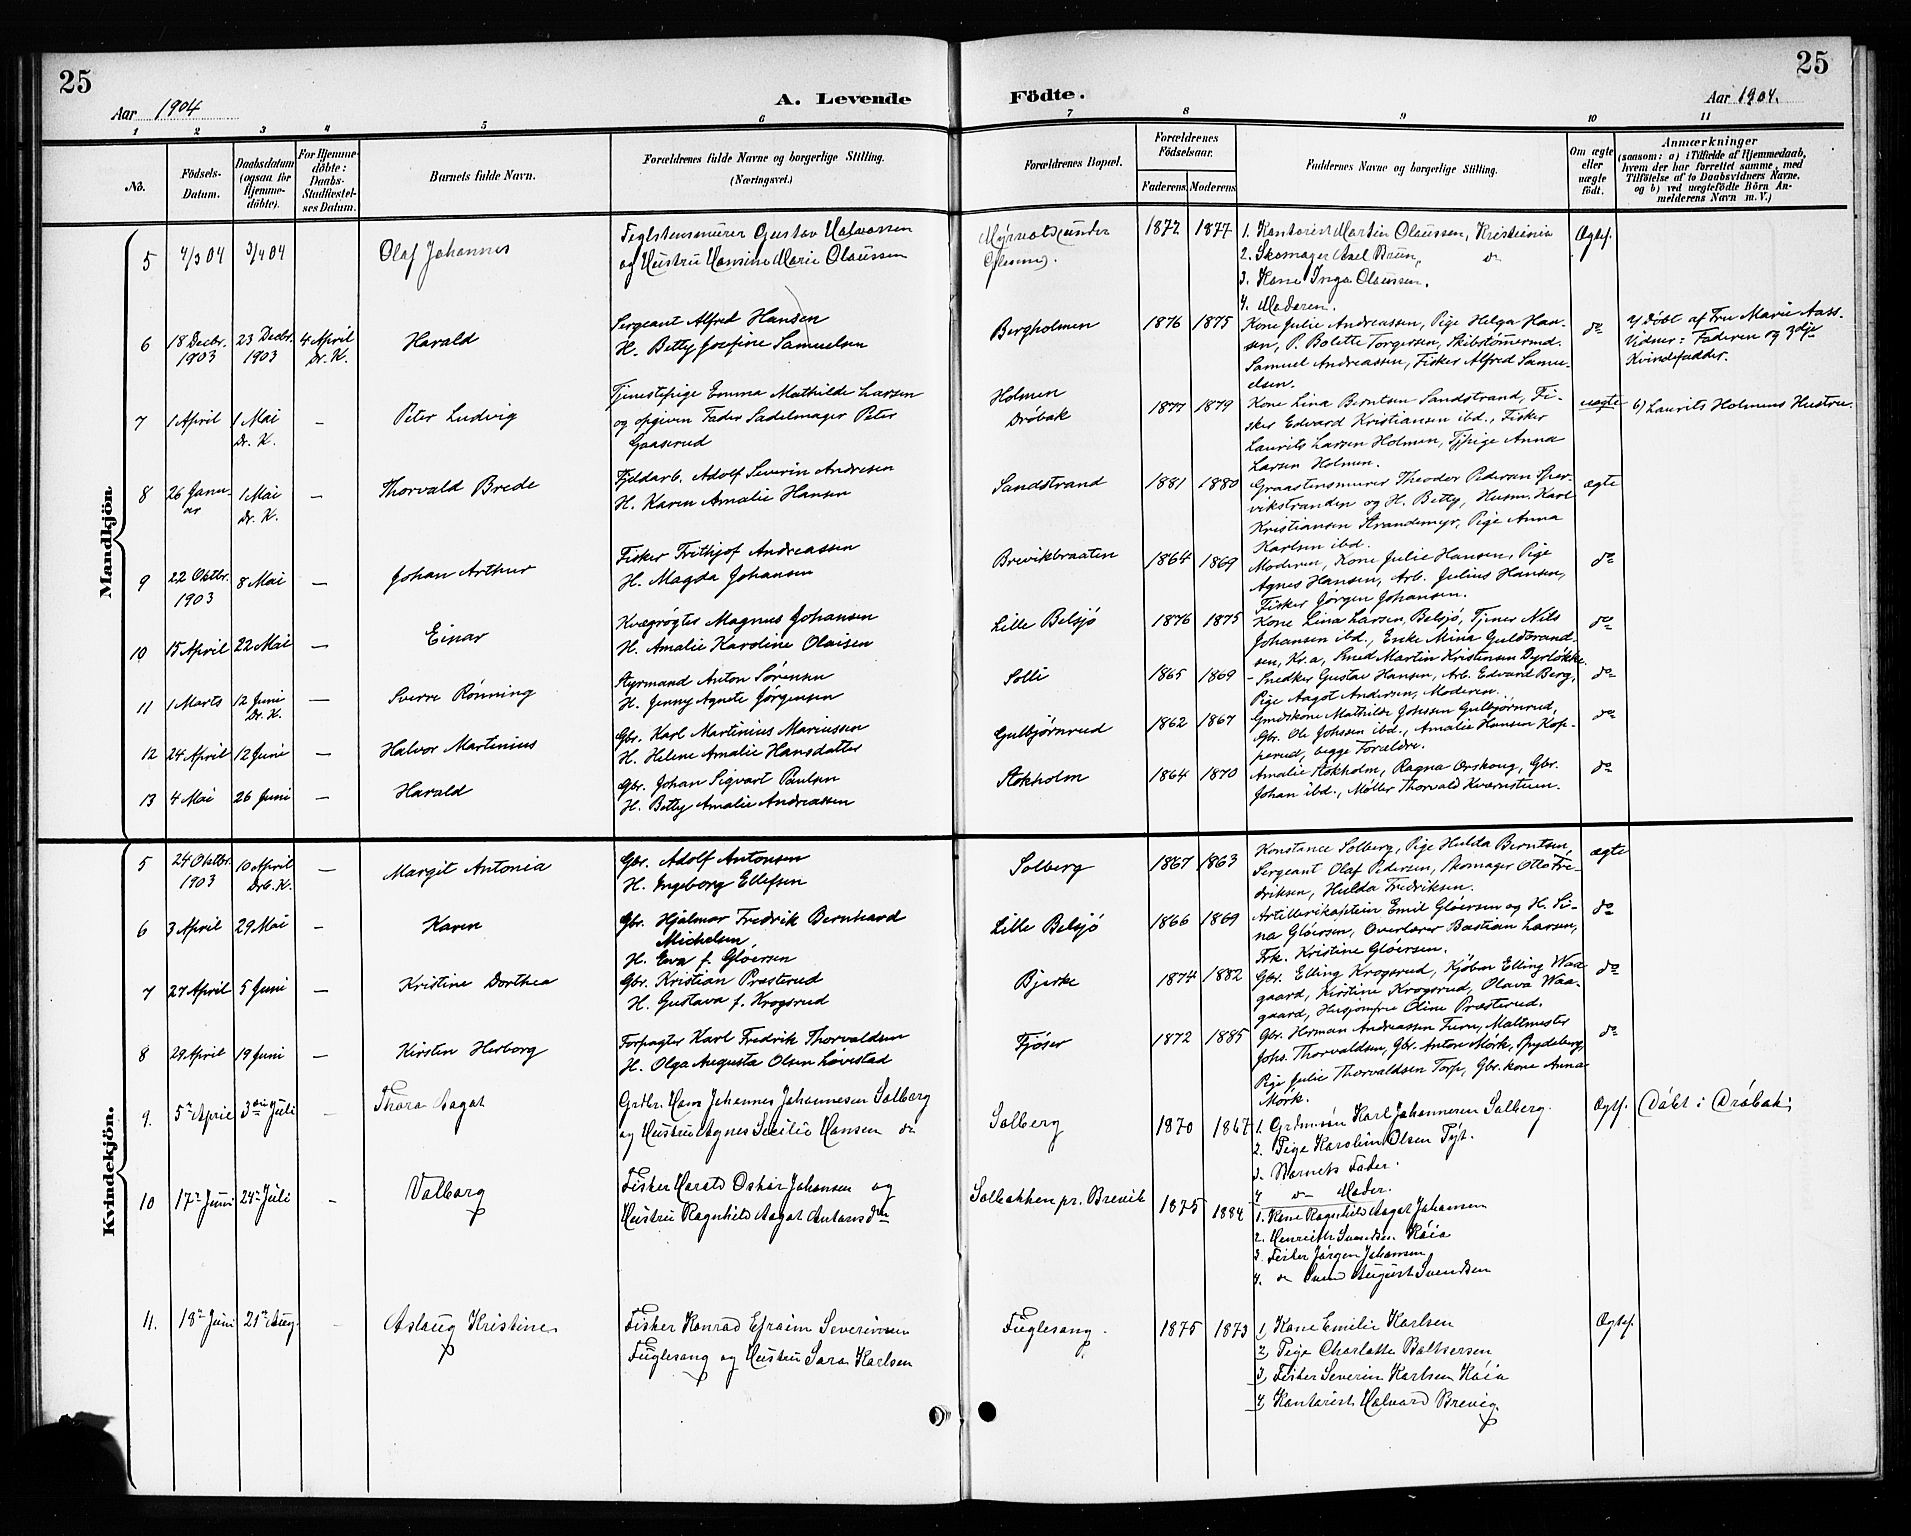 25
Aar 1904
A. Levende
Födte.
Aar 1904.
25
1 2 3 4 5 6 7 8 9 10 11
No.
Födsels-Datum.
Daabsdatum (ogsaa for Hjemme-döbte).
For Hjemme-döbte: Daabs-Stadfæstel-ses Datum.
Barnets fulde Navn.
Forældrenes fulde Navne og borgerlige Stilling.
(Næringsvei.)
Forældrenes Bopæl.
Forældrenes Födselsaar.
Faderens. Moderens.
Faddernes Navne og borgerlige Stilling.
Om ægte eller uægte födt.
Anmærkninger
(saasom: a) i Tilfælde af Hjemmedaab, hvem der har forrettet samme, med Tilföielse af to Daabsvidners Navne, og b) ved uægtefödte Börn An-melderens Navn m. V.)
Mandkjön
5 4/3 04 3/4 04 Olaf Johannes
Teglstensmurer Gustav Halvorsen
og Hustru Hansine Marie Olaussen
1872 1877
1. Kontorist Martin Olaussen, Kristiania
2. Skomager Axel Brun, do
3. Kone Inga Olaussen.
4. Moderen.
Ægtef.
6 18 Decbr. 1903 23 Decbr. 1903 4 April Dr. K. Harald
Sergeant Alfred Hansen
H. Betty Josefine Samuelsen
Bergholmen 1876 1875
Kone Julie Andreassen, Pige Helga Han-
sen, P. Bolette Torgersen, Skibstømermd.
Samuel Andreassen, Fisker Alfred Samu-
elsen.
do
a) Døbt af Fru Marie Aass.
Vidner: Faderen og 3dje
Kvindefadder.
7 1 April 1 Mai Dr. K. – Peter Ludvig
Tjenestepige Emma Mathilde Larsen
og opgiven Fader Sadelmager Peter
Gaaserud
Holmen
Drøbak
1877 1879
Kone Lina Berntsen Sandstrand, Fi-
sker Edvard Kristiansen ibd., Fisker
Laurits Larsen Holmen, Tjpige Anna
Larsen Holmen.
uægte
b) Laurits Holmens Hustru.
8 26 Janu-ar 1 Mai Dr. K. – Thorvald Brede
Fjeldarb. Adolf Severin Andresen
H. Karen Amalie Hansen
Sandstrand 1881 1880
Graastensmurer Theodor Pedersen Spar-
vikstranden og H. Betty, Husm. Karl
Kristiansen Strandemyr, Pige Anna
Karlsen ibd.
ægte
9 22 Oktbr. 1903 8 Mai – Johan Arthur
Fisker Frithjof Andreassen
H. Magda Johansen
Brevikbraaten 1864 1869
Moderen, Kone Julie Hansen, Pige
Agnes Hansen, Arb. Julius Hansen,
Fisker Jørgen Johansen.
do
10 15 April 22 Mai – Einar
Kvægrøgter Magnus Johansen
H. Amalie Karoline Olaisen
Lille Belsjø 1876 1875
Kone Lina Larsen, Belsjø, Tjener Nils
Johansen ibd., Enke Mina Guldbrand-
sen, Kr.a, Smed Martin Kristensen Dyrløkke.
do
11 1 Marts 12 Juni Dr. K. – Sverre Rønning
Styrmand Anton Sørensen
H. Jenny Agnete Jørgensen
Solli 1865 1869
– Snedker Gustav Hansen, Arb. Edvard Berg,
Pige Aagot Andersen, Moderen.
do
12 24 April 12 Juni – Halvor Martinius
Gbr. Karl Martinius Mariussen
H. Helene Amalie Hansdatter
Gulbjørnrud 1862 1867
Gmdskone Mathilde Johssen Gulbjørnrud,
Gbr. Ole Johssen ibd., Amalie Hansen Kop-
perud, begge Forældre.
do
13 4 Mai 26 Juni – Harald
Gbr. Johan Sigvart Paulsen
H. Betty Amalie Andreassen
Stokholm 1864 1870
Amalie Stokholm, Ragna Orskoug, Gbr.
Johan ibd., Møller Thorvald Kvernstuen.
do
Kvindekjön.
5 24 Oktbr. 1903 10 April Drb. K. – Margit Antonia
Gbr. Adolf Antonsen
H. Ingeborg Ellefsen
Solberg 1867 1863
Konstance Solberg, Pige Hulda Berntsen,
Sergeant Olaf Pedersen, Skomager Otto Fre-
driksen, Hulda Fredriksen.
ægte
6 3 April 29 Mai – Karen
Gbr. Hjalmar Fredrik Bernhard
Michelsen,
H. Eva f. Gløersen
Lille Belsjø 1866 1869
Artillerikaptein Emil Gløersen og H. Si-
na Gløersen, Overlærer Bastian Larsen,
Frk. Kristine Gløersen.
do
7 27 April 5 Juni – Kristine Dorthea
Gbr. Kristian Præsterud
H. Gustava f. Krogsrud
Bjerke 1874 1882
Gbr. Elling Krogsrud, Kjøbm. Elling Waa-
gaard, Kirstine Krogsrud, Olava Waa-
gaard, Husjomfru Oline Præsterud.
do
8 29 April 19 Juni – Kirsten Herborg
Forpagter Karl Fredrik Thorvaldsen
H. Olga Augusta Olsen Løvestad
Fjøser 1872 1885
Gbr. Herman Andreassen Furu, Maltmester
Johs. Thorvaldsen, Gbr. Anton Mörk, Spydeberg,
Pige Julie Thorvaldsen Torp, Gbr.kone Anna
Mörk.
do
9. 5te April 3die Juli – Thora Aagot
Grdbr. Hans Johannes Johannesen Solberg
og Hustru Agnes Secilie Hansen do
Solberg 1870 1867
1. Grdmnsøn Karl Johannesen Solberg.
2. Pige Karoline Olsen
3. Barnets Fader.
4. do Moder.
Ægtef.
Døbt i Drøbak
10 17de Juni 24de Juli – Valborg
Fisker Harald Oskar Johansen og
Hustru Ragnhild Aagot Antonsdtr
Solbakken pr. Brevik 1875 1884
1. Kone Ragnhild Aagot Johansen
2. Henriette Svendsen Räia
3. Fisker Jørgen Johansen
4. do Svend August Svendsen
11. 18de Juni 21de Aug. – Aslaug Kristine
Fisker Konrad Efraim Severinsen
Fuglesang og Hustru Sara Karlsen
Fuglesang. 1875 1873
1) Kone Emilie Karlsen
2) Pige Charlotte Baltsersen
3) Fisker Severin Karlsen Räia
4) Kontorist Halvard Brevig
Ægtef.